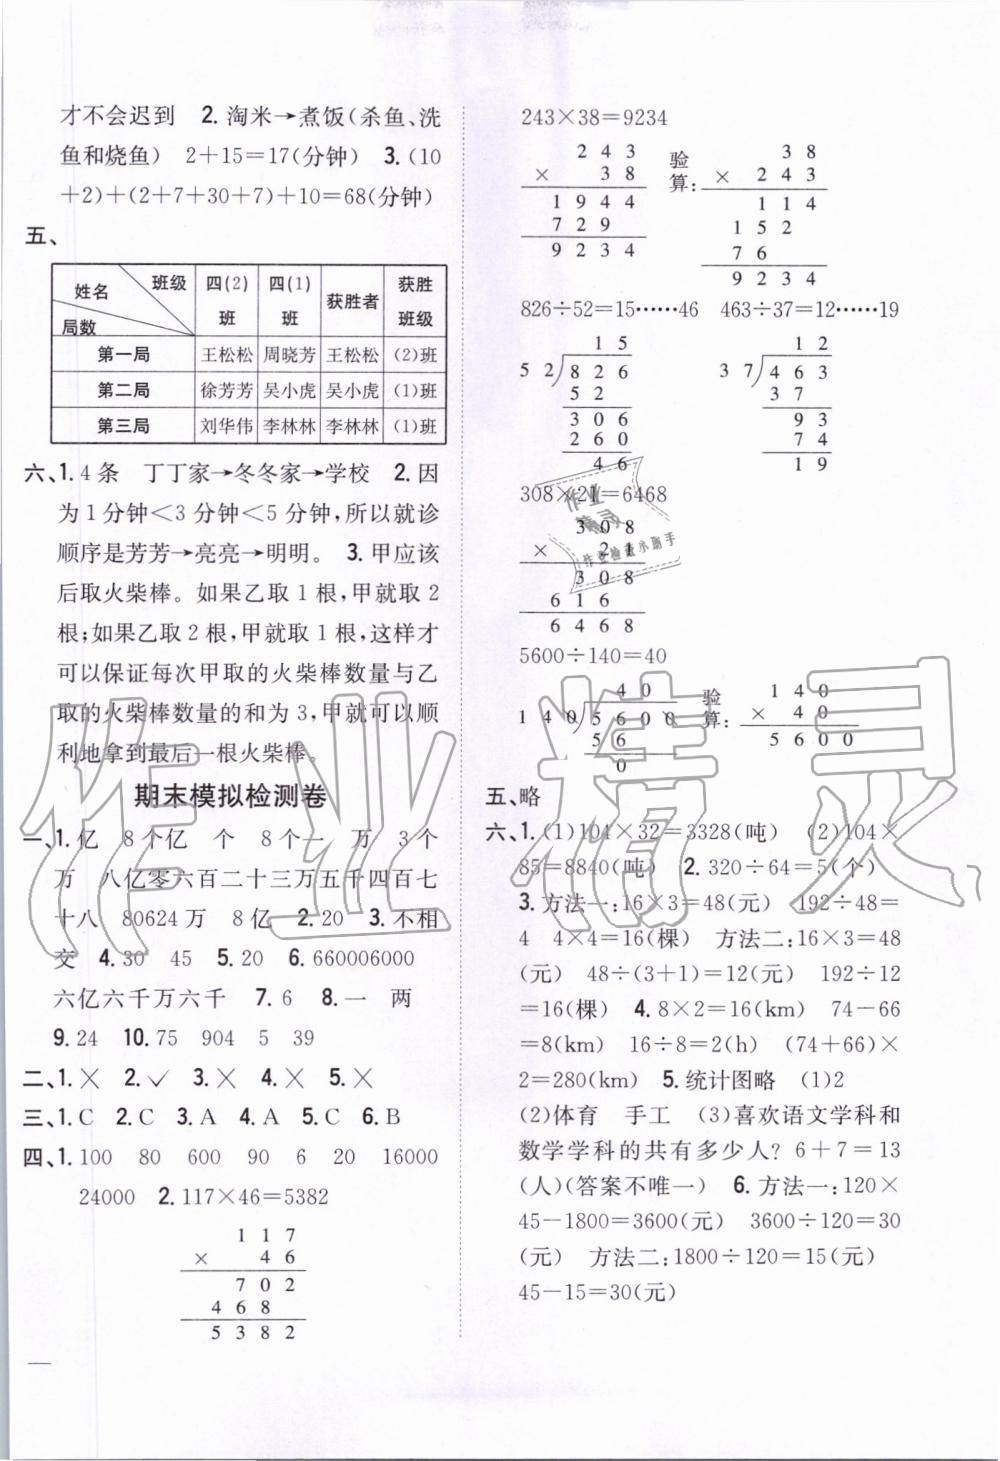 才不会迟到　2. 淘米→煮饭(杀鱼、洗
鱼和烧鱼)　2+15=17(分钟)　3. (10
+2)+(2+7+30+7)+10=68(分钟)
五、
姓名　班级　局数　四(2)班　四(1)班　获胜者　获胜班级
第一局　王松松　周晓芳　王松松　(2)班
第二局　徐芳芳　吴小虎　吴小虎　(1)班
第三局　刘华伟　李林林　李林林　(1)班
六、1. 4条　丁丁家→冬冬家→学校　2. 因
为1分钟<3分钟<5分钟,所以就诊
顺序是芳芳→亮亮→明明。　3. 甲应该
后取火柴棒。如果乙取1根,甲就取2
根;如果乙取2根,甲就取1根,这样才
可以保证每次甲取的火柴棒数量与乙
取的火柴棒数量的和为3,甲就可以顺
利地拿到最后一根火柴棒。
期末模拟检测卷
一、1. 亿　8个亿　个　8个一　万　3个
万　八亿零六百二十三万五千四百七
十八　80624万　8亿　2. 20　3. 不相
交　4. 30　45　5. 20　6. 660006000
六亿六千万六千　7. 6　8. 一　两
9. 24　10. 75　904　5　39
二、1. ×　2. ✓　3. ×　4. ×　5. ×
三、1. C　2. C　3. A　4. A　5. C　6. B
四、1. 100　80　600　90　6　20　16000
24000　2. 117×46=5382
1 1 7
× 4 6
7 0 2
4 6 8
5 3 8 2
243×38=9234
2 4 3
× 3 8
1 9 4 4
7 2 9
9 2 3 4
验算:
3 8
× 2 4 3
1 1 4
1 5 2
7 6
9 2 3 4
826÷52=15……46　463÷37=12……19
1 5
5 2 8 2 6
5 2
3 0 6
2 6 0
4 6
1 2
3 7 4 6 3
3 7
9 3
7 4
1 9
308×21=6468
3 0 8
× 2 1
3 0 8
6 1 6
6 4 6 8
5600÷140=40
4 0
1 4 0 5 6 0 0
5 6
0
验算:
1 4 0
× 4 0
5 6 0 0
五、略
六、1. (1)104×32=3328(吨)　(2)104×
85=8840(吨)　2. 320÷64=5(个)
3. 方法一:16×3=48(元)　192÷48=
4　4×4=16(棵)　方法二:16×3=48
(元)　48÷(3+1)=12(元)　192÷12
=16(棵)　4. 8×2=16(km)　74-66
=8(km)　16÷8=2(h)　(74+66)×
2=280(km)　5. 统计图略　(1)2
(2)体育　手工　(3)喜欢语文学科和
数学学科的共有多少人? 6+7=13
(人)(答案不唯一)　6. 方法一:120×
45-1800=3600(元)　3600÷120=30
(元)　方法二:1800÷120=15(元)
45-15=30(元)
作业精灵
作业检查小助手
作业精灵